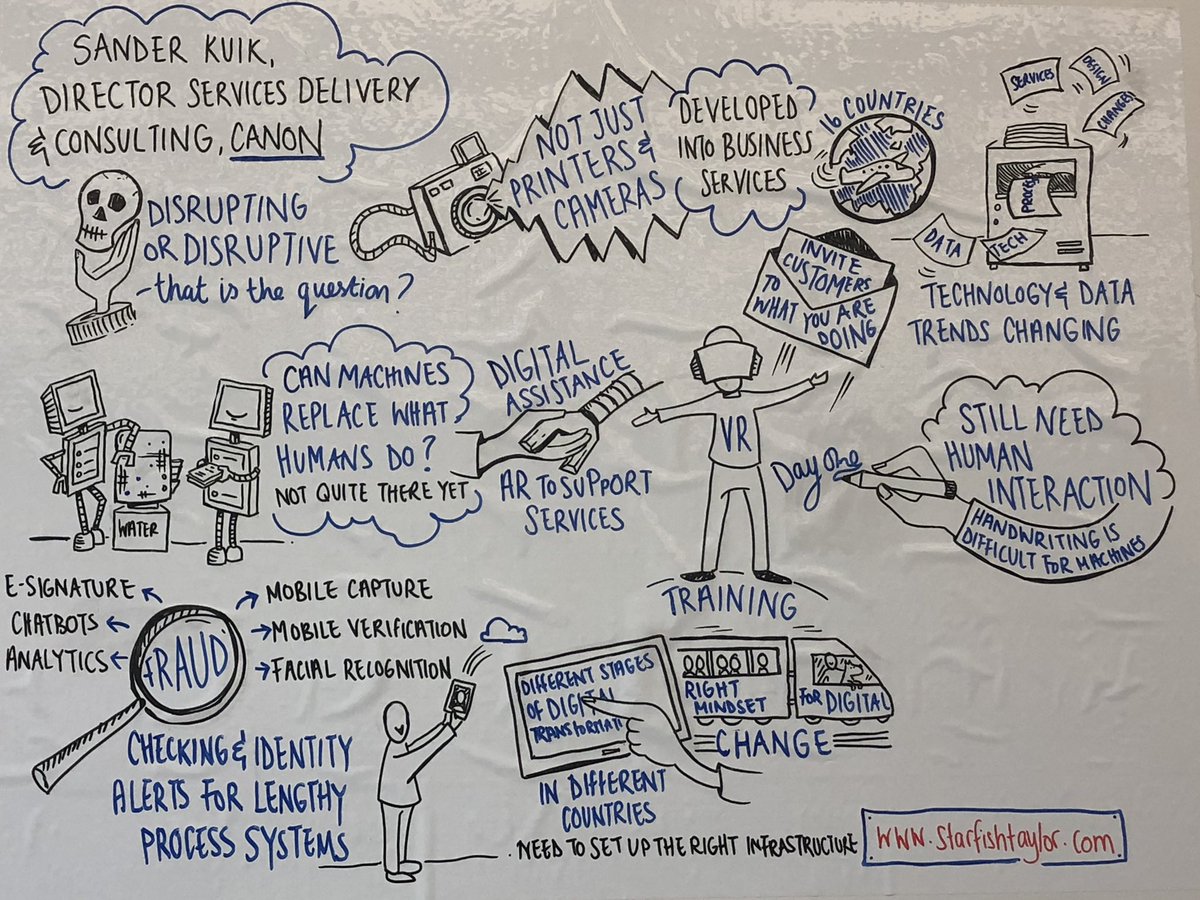 SANDER KUIK,
DIRECTOR SERVICES DELIVERY
& CONSULTING, CANON
DISRUPTING
OR DISRUPTIVE
- that is the question?
NOT JUST
PRINTERS &
CAMERAS
DEVELOPED
INTO BUSINESS
SERVICES
16 COUNTRIES
SERVICES
DESIGN
CHANGES
DATA
TECH
TECHNOLOGY & DATA
TRENDS CHANGING
INVITE
CUSTOMERS
TO
WHAT YOU ARE
DOING
CAN MACHINES
REPLACE WHAT
HUMANS DO?
NOT QUITE THERE YET
WATER
DIGITAL
ASSISTANCE
AR TO SUPPORT
SERVICES
VR
TRAINING
Day One
STILL NEED
HUMAN
INTERACTION
HANDWRITING IS
DIFFICULT FOR MACHINES
E-SIGNATURE
CHATBOTS
ANALYTICS
FRAUD
MOBILE CAPTURE
MOBILE VERIFICATION
FACIAL RECOGNITION
CHECKING & IDENTITY
ALERTS FOR LENGTHY
PROCESS SYSTEMS
DIFFERENT STAGES
OF DIGITAL
TRANSFORMATI
IN DIFFERENT
COUNTRIES
RIGHT
MINDSET
FOR DIGITAL
CHANGE
NEED TO SET UP THE RIGHT INFRASTRUCTURE
www.starfishtaylor.com